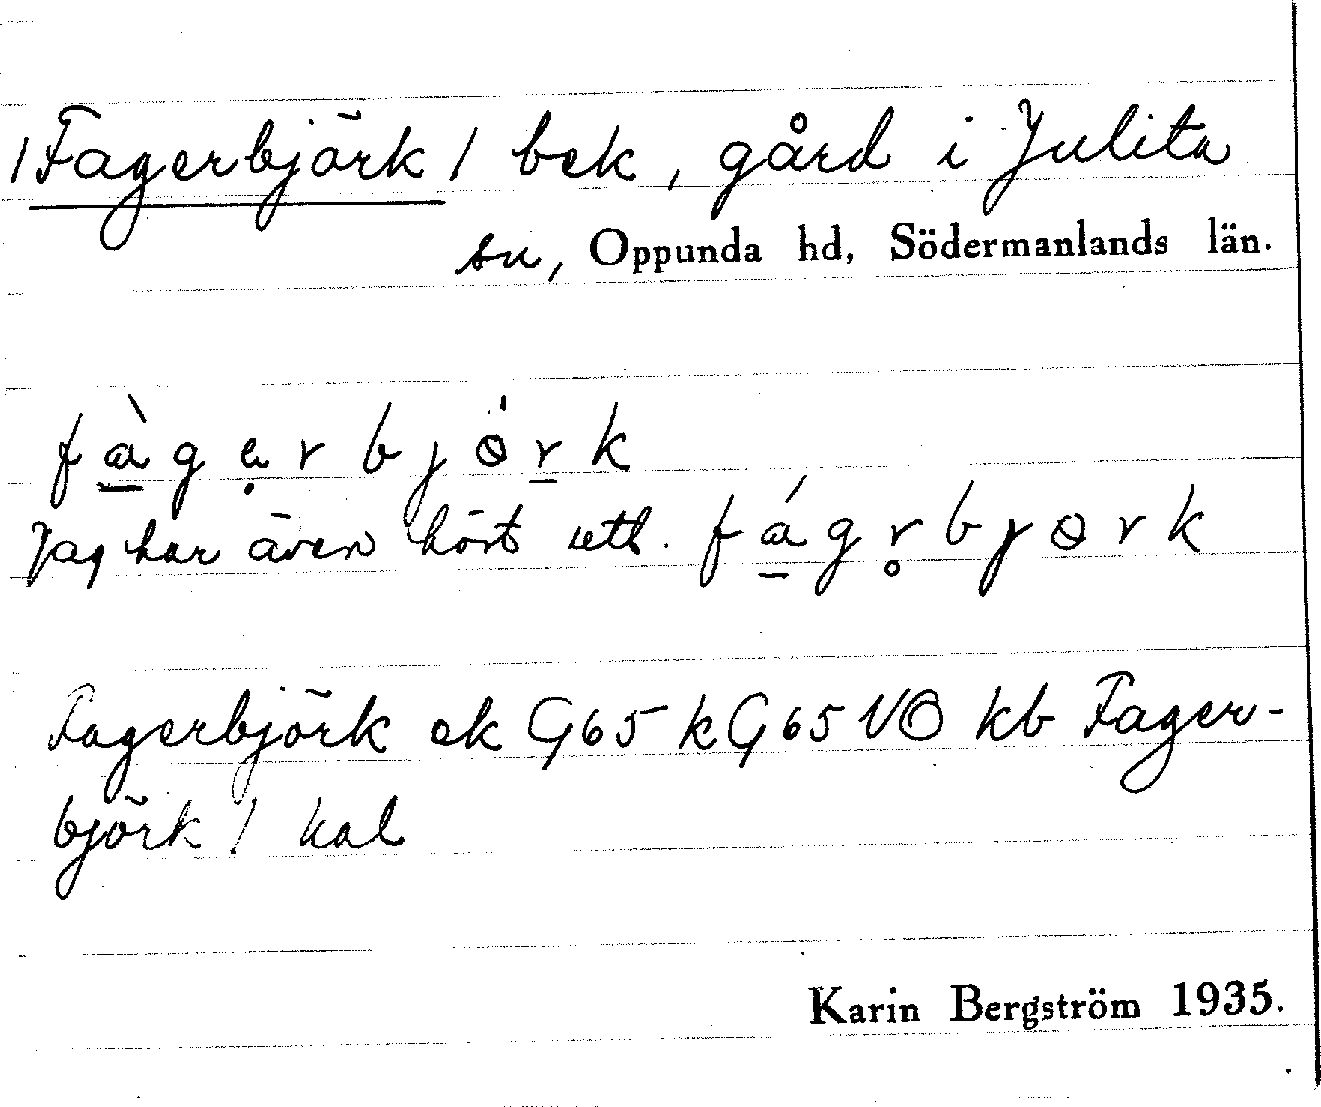 /Fagerbjörk/ bek, gård i Julita
sn, Oppunda hd, Södermanlands län.
fàgerbjørk
Jag har även hört utt. fágr̥bjørk
Fagerbjörk ek G65 k G65 VO kb Fager-
björk / kal
Karin Bergström 1935.